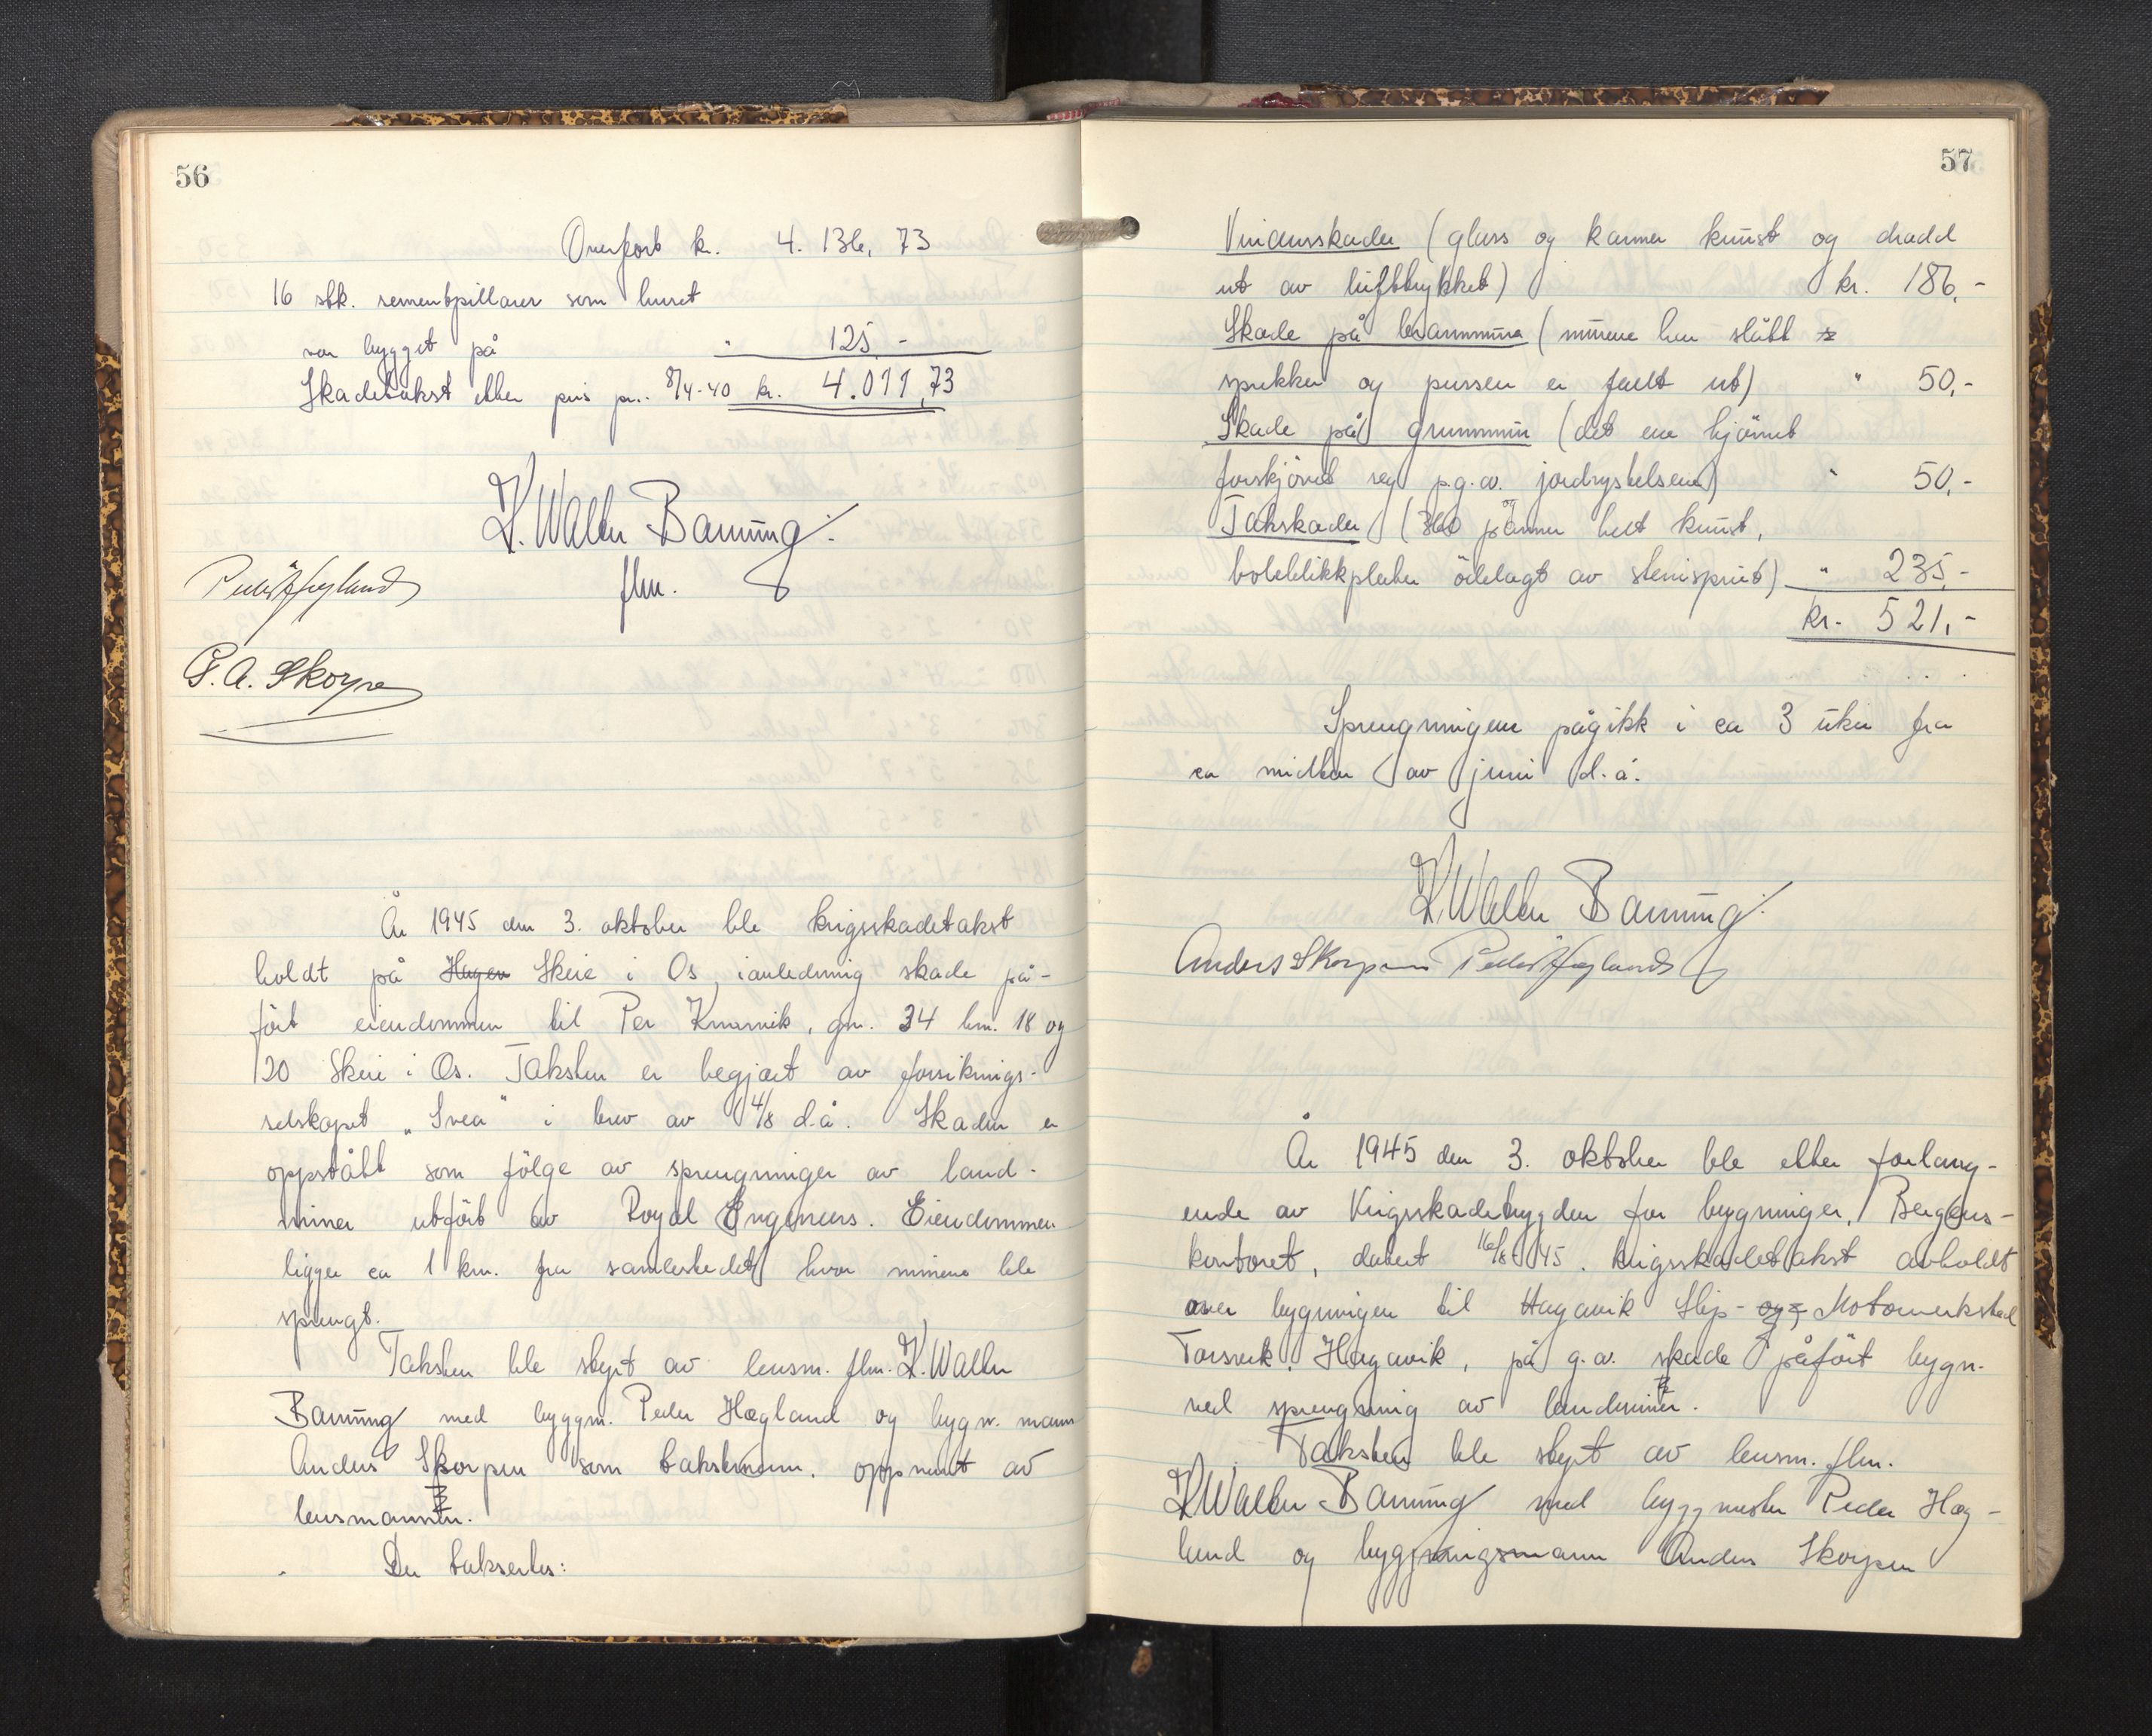 56
Overført kr. 4.136,73
16 stk. sementpillarer som huset
var bygget på " 125,-
Skadetakst etter pris pr. 8/4-40 kr. 4.011,73
K. Waller Banning.
flm.
Peder Hægland
A. Skorpen
År 1945 den 3. oktober ble krigsskadetakst
holdt på Hagen Skeie i Os, i anledning skade på-
ført eiendommen til Per , gnr. 34 bnr. 18 og
120 Skeie i Os. Taksten er begjært av forsikrings-
selskapet „Svea" i brev av 4/8 d.å. Skaden er
oppstått som følge av sprengninger av land-
miner utført av Royal Engineers. Eiendommen
ligger ca 1 km. fra samlestedet hvor minene ble
sprengt.
Taksten ble styrt av lensm. flm. K. Waller
Banning med byggm. Peder Hægland og bygn. mann
Anders Skorpen som takstmenn, oppnevnt av
lensmannen.
Der takseertes:
57
Vindusskader (glass og karmer knust og dradd
ut av lufttrykket) kr. 186,-
Skade på brannmur (murene har slått
sprekker og pussen er falt ut) " 50,-
Skade på grunnmur (det ene hjørnet
forskjøvet seg p.g.a. jordrystelsene) " 50,-
Takskader (360 panner helt knust, og
bølgeblikkplater ødelagt av stensprut) " 235,-
kr. 521,-
Sprengningene pågikk i ca 3 uker fra
ca midten av juni d.å.
K. Waller Banning.
Anders Skorpen Peder Hægland
År 1945 den 3. oktober ble etter forlang-
ende av Krigsskadetrygden for bygninger, Bergens-
kontoret, datert 16/8 45. krigsskadetakst avholdt
over bygninger til Hagavik Slip- og Motorverksted
Torsvik, Hagavik, på g.a. skade påført bygn.
ved sprengning av landminer.
Taksten ble styrt av lensm. flm.
K Waller Banning med byggmester Peder Hæg-
land og bygningsmann Anders Skorpen